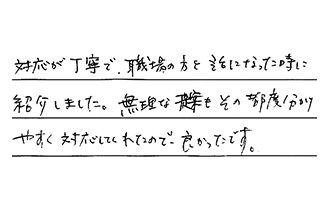 対応が丁寧で、職場の方と話になった時に
紹介しました。無理な も その都度分かり
やすく対応してくれたので良かったです。